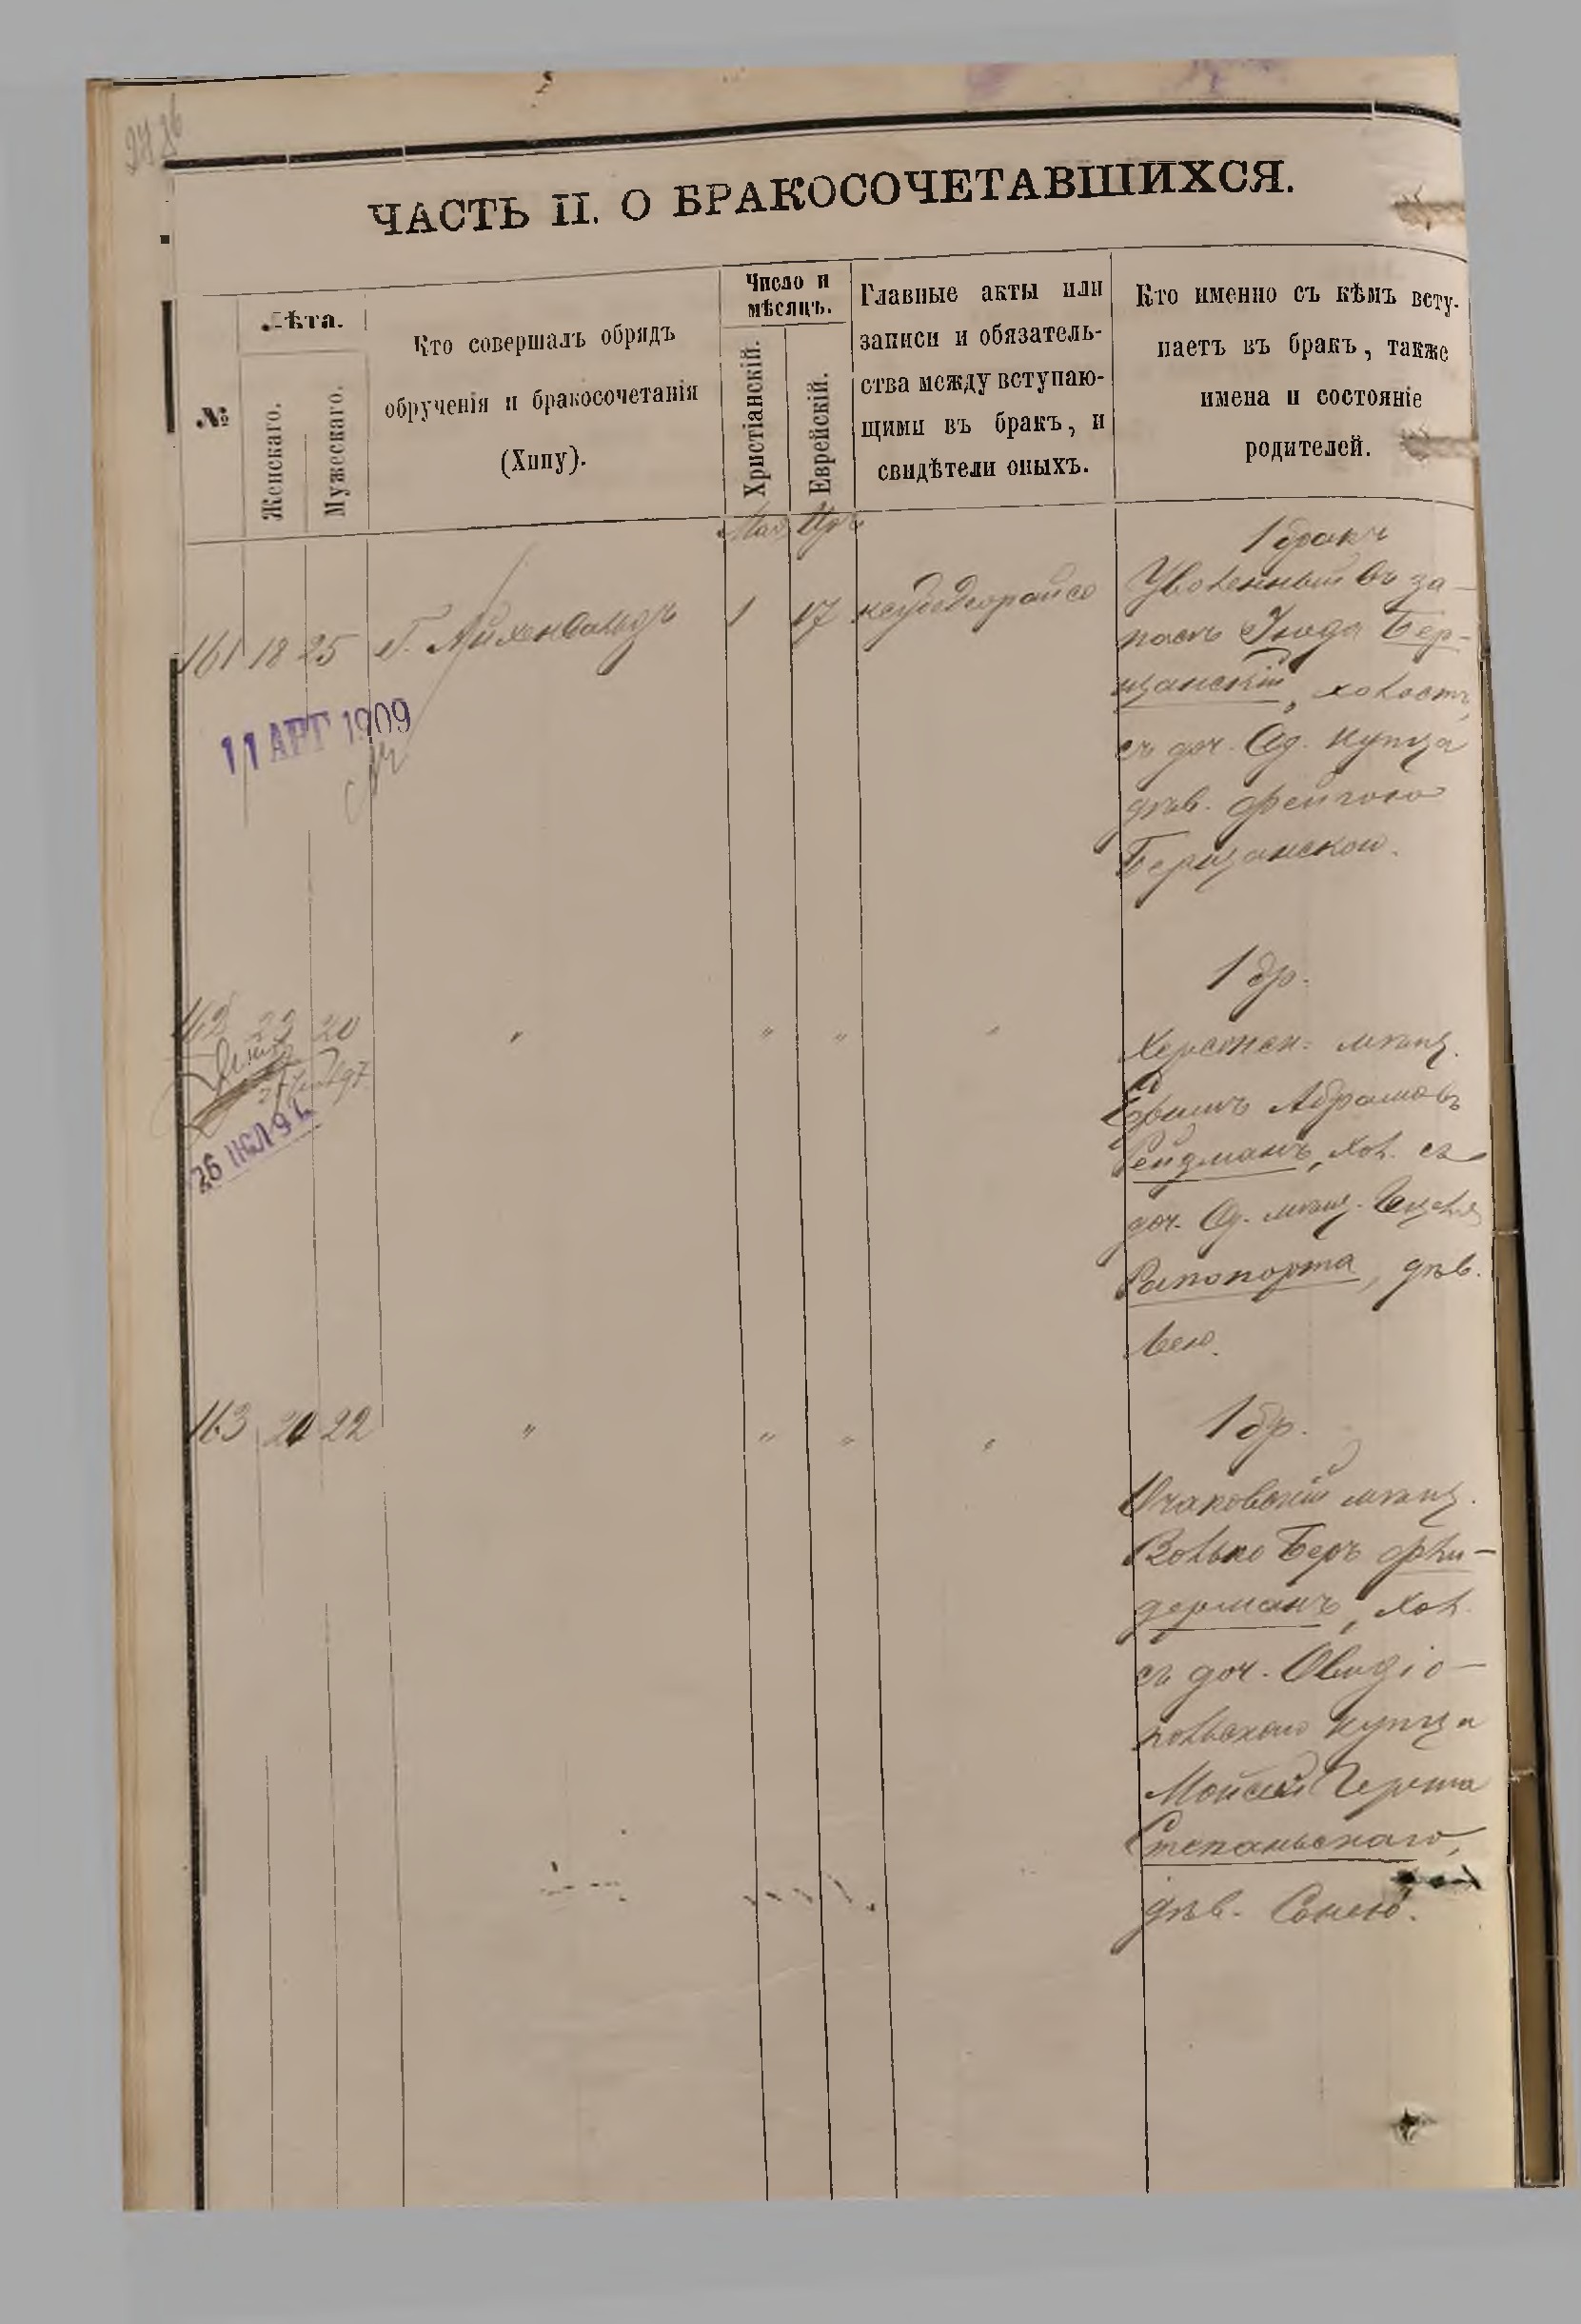 ЧАСТЬ II. О БРАКОСОЧЕТАВШИХСЯ.
№
Лѣта.
Женскаго.
Мужескаго.
Кто совершалъ обрядъ
обрученія и бракосочетанія
(Хипу).
Число и
мѣсяцъ.
Христіанскій.
Еврейскій.
Главные акты или
записи и обязатель-
ства между вступаю-
щими въ бракъ, и
свидѣтели оныхъ.
Кто именно съ кѣмъ всту-
паетъ въ бракъ, также
имена и состояніе
родителей.
Мая Иръ
161 18 25 Г. Айхенвальдъ 1 17
1 бракъ
Уволенный въ за-
пасъ Іюда Бер-
щанскій, холостъ,
съ доч. Од. купца
дѣв. Фейгою
Берщанской.
11 АПР 1909
162 23 20 " " " "
1 бр.
Херсонск: мѣщ.
Абрамовъ
Рейдманъ, хол. съ
доч. Од. мѣщ.
Рапопорта, дѣв.
163 20 22 " " " "
1 бр.
Очаковскій мѣщ.
Волько Беръ Фли-
дерманъ, хол.
съ доч. Овидіо-
польскаго купца
Мойсея Герша
Степаньскаго,
дѣв. Сонею.